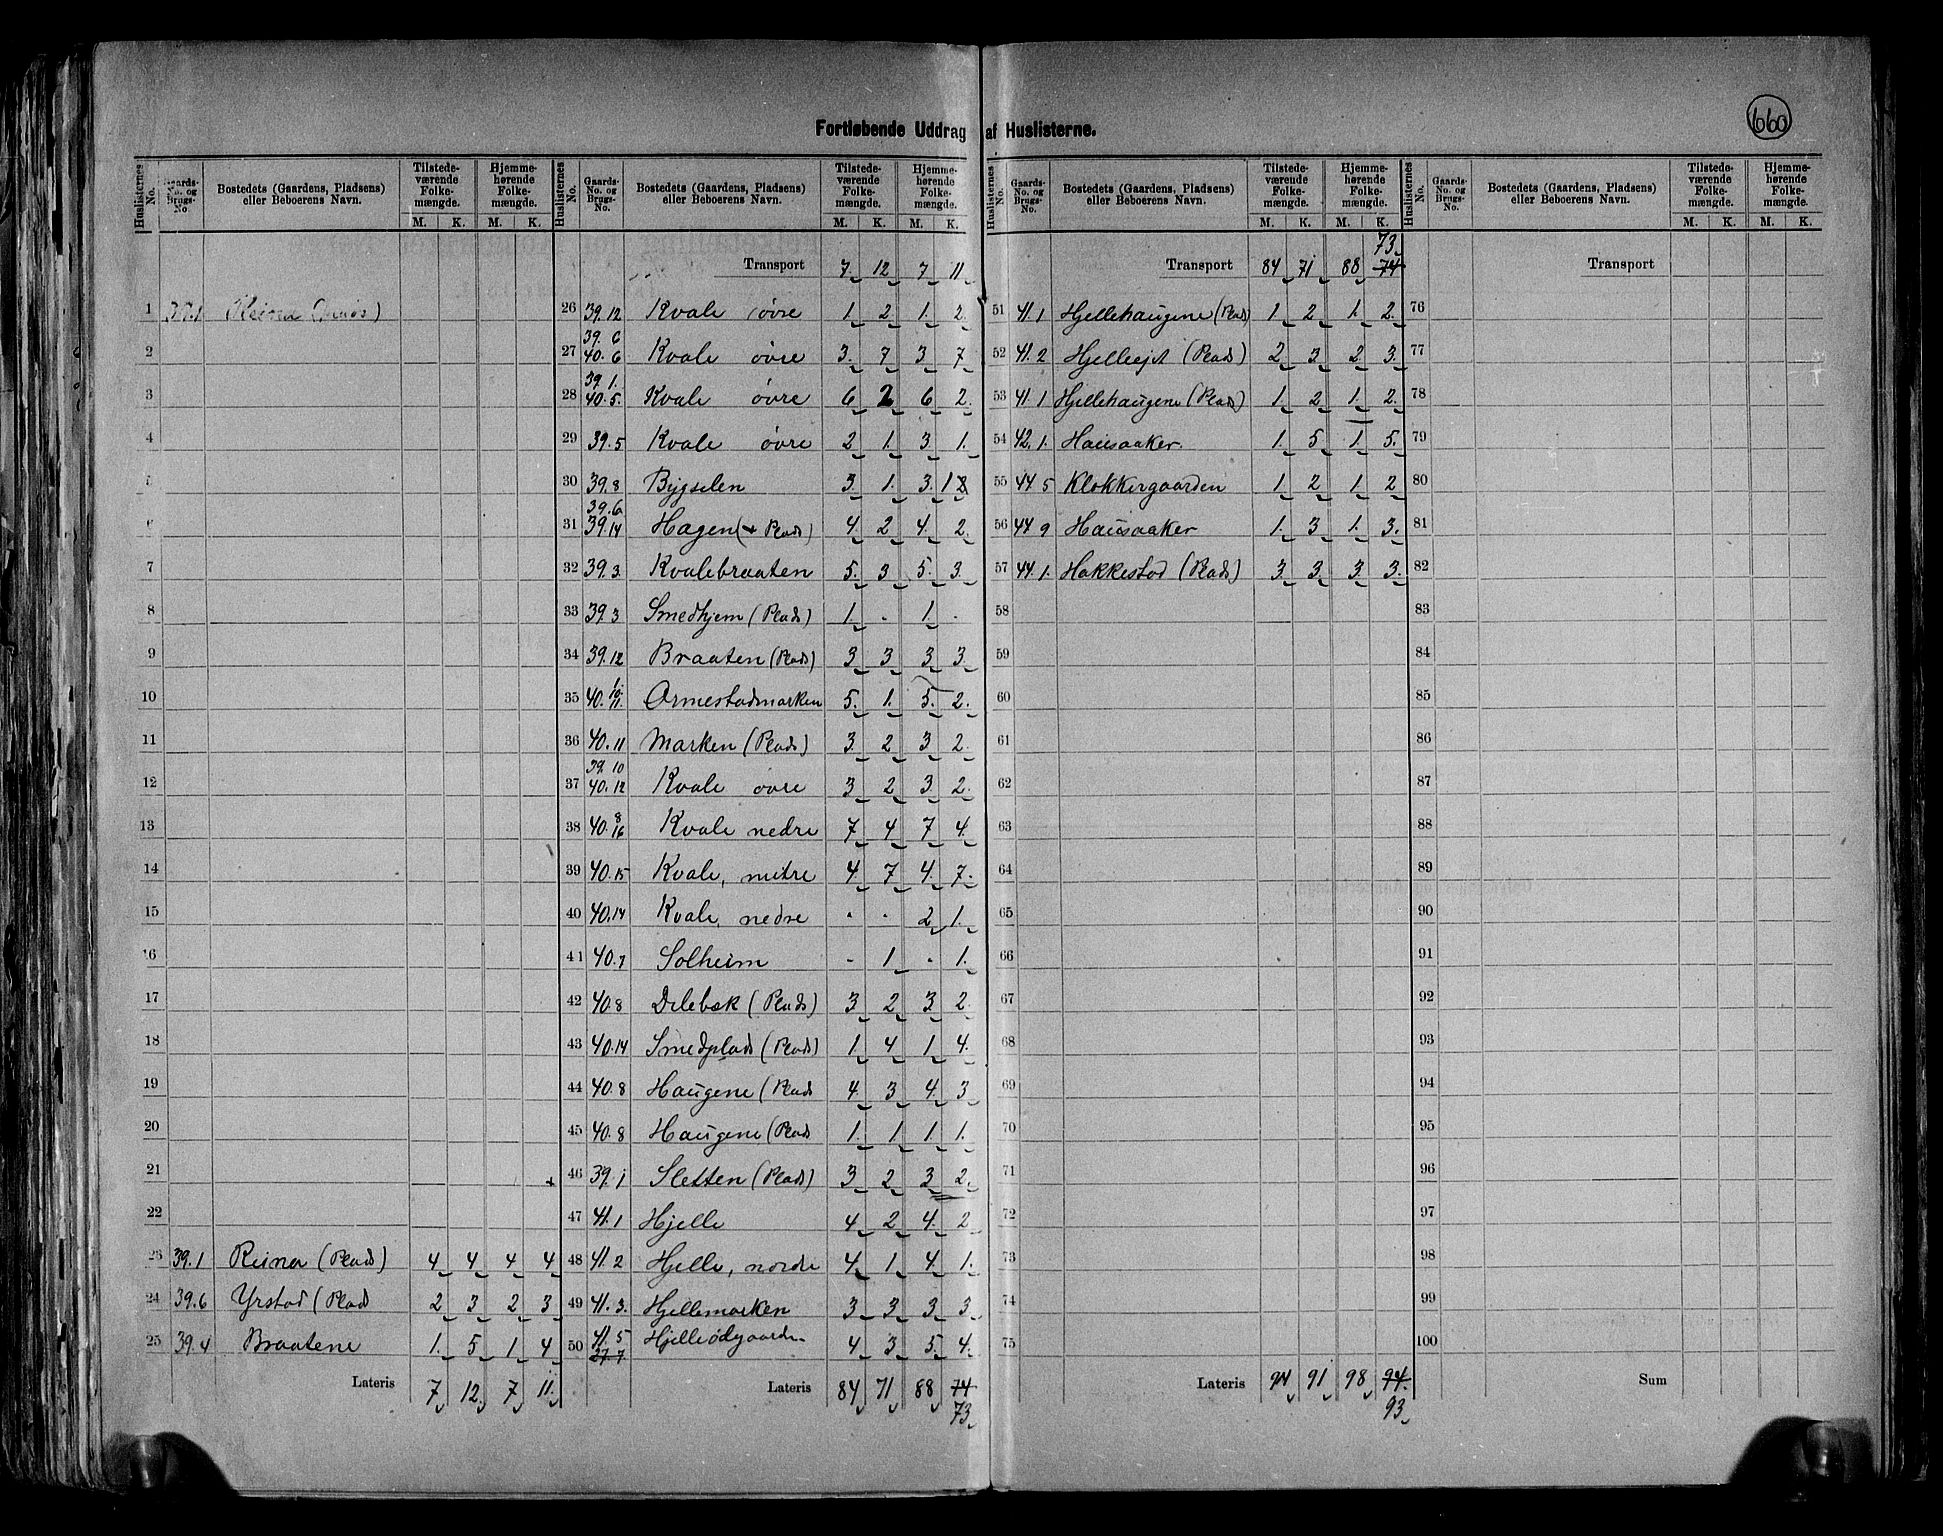 660
Fortløbende Uddrag af Huslisterne.
Huslisternes No. Gaards-No. og Brugs-No. Bostedets (Gaardens, Pladsens) eller Beboerens Navn. Tilstedeværende Folkemængde. M. K. Hjemmehørende Folkemængde. M. K.
1 39.1
2
3
4
5
6
7
8
9
10
11
12
13
14
15
16
17
18
19
20
21
22
23 39.1 Reina (Plads) 4 4 4 4
24 39.6 Yrstad (Plad 2 3 2 3
25 39.4 Braatene 1. 5 1 4
Lateris 7 12. 7 11.
Huslisternes No. Gaards-No. og Brugs-No. Bostedets (Gaardens, Pladsens) eller Beboerens Navn. Tilstedeværende Folkemængde. M. K. Hjemmehørende Folkemængde. M. K.
Transport 7. 12 7 11
26 39.12 Kvale øvre 1. 2 1. 2.
27 39.6 40.6 Kvale øvre 3. 7 3 7
28 39.1. 40.5. Kvale øvre 6 2 6 2.
29 39.5 Kvale øvre 2 1. 3. 1.
30 39.8 Bygselen 3. 1. 3. 1 2
31 39.6 39.14 Hagen (+ Plads) 4 2 4. 2.
32 39.3. Kvalebraaten 5. 3 5. 3.
33 39.3 Smedhjem (Plads) 1. - 1. -
34 39.12 Braaten (Plads) 3 3 3 3.
35 40.10. 11. Ormestadmarken 5. 1. 5. 2.
36 40.11 Marken (Plads) 3. 2 3 2.
37 39.10 40.12 Kvale øvre 3 2 3. 2.
38 40.8 16 Kvale nedre 7 4 7 4.
39 40.15 Kvale, mitre 4. 7 4. 7.
40 40.14 Kvale, nedre - - 2 1.
41 40.7 Solheim - 1 - 1.
42 40.8 Delebæk (Plads) 3 2 3 2.
43 40.14 Smedplads (Plads) 1. 4 1 4.
44 40.8 Haugene (Plads 4. 3 4. 3
45 40.8 Haugene (Plad 1. 1 1. 1.
46 39.1 Sletten (Plads) 3 2 3 2.
47 41.1 Hjelle 4 2 4. 2
48 41.2 Hjelle, nordre 4. 1 4. 1.
49 41.3. Hjellemarken 3 3 3 3.
50 41.5 27.7 Hjelleødegaarden 4 3 5. 4.
Lateris 84 71 88 74
73
Huslisternes No. Gaards-No. og Brugs-No. Bostedets (Gaardens, Pladsens) eller Beboerens Navn. Tilstedeværende Folkemængde. M. K. Hjemmehørende Folkemængde. M. K.
73
Transport 84 71 88 74
51 41.1 Hjellehaugene (Plad) 1. 2 1. 2.
52 41.2 Hjelleejt (Plads) 2 3 2. 3.
53 41.1 Hjellehaugene (Plads) 1. 2 1. 2.
54 42.1. Hausaaker. 1. 5 1. 5.
55 44 5 Klokkergaarden 1. 2 1. 2
56 44 9 Hausaaker 1. 3 1. 3.
57 44.1. Hakkestad (Plads) 3. 3. 3. 3.
58
59
60
61
62
63
64
65
66
67
68
69
70
71
72
73
74
75
Lateris 94 91 98 94.
93
Huslisternes No. Gaards-No. og Brugs-No. Bostedets (Gaardens, Pladsens) eller Beboerens Navn. Tilstedeværende Folkemængde. M. K. Hjemmehørende Folkemængde. M. K.
Transport
76
77
78
79
80
81
82
83
84
85
86
87
88
89
90
91
92
93
94
95
96
97
98
99
100
Sum